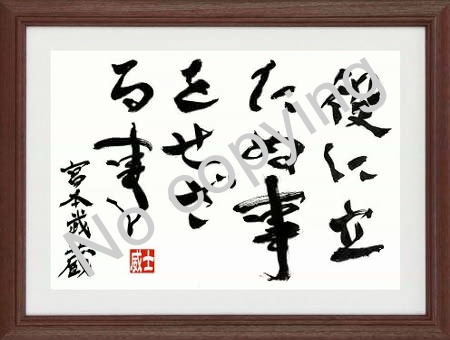 役に立
たぬ事
をせざ
る事也
宮本武蔵
士威
No copying